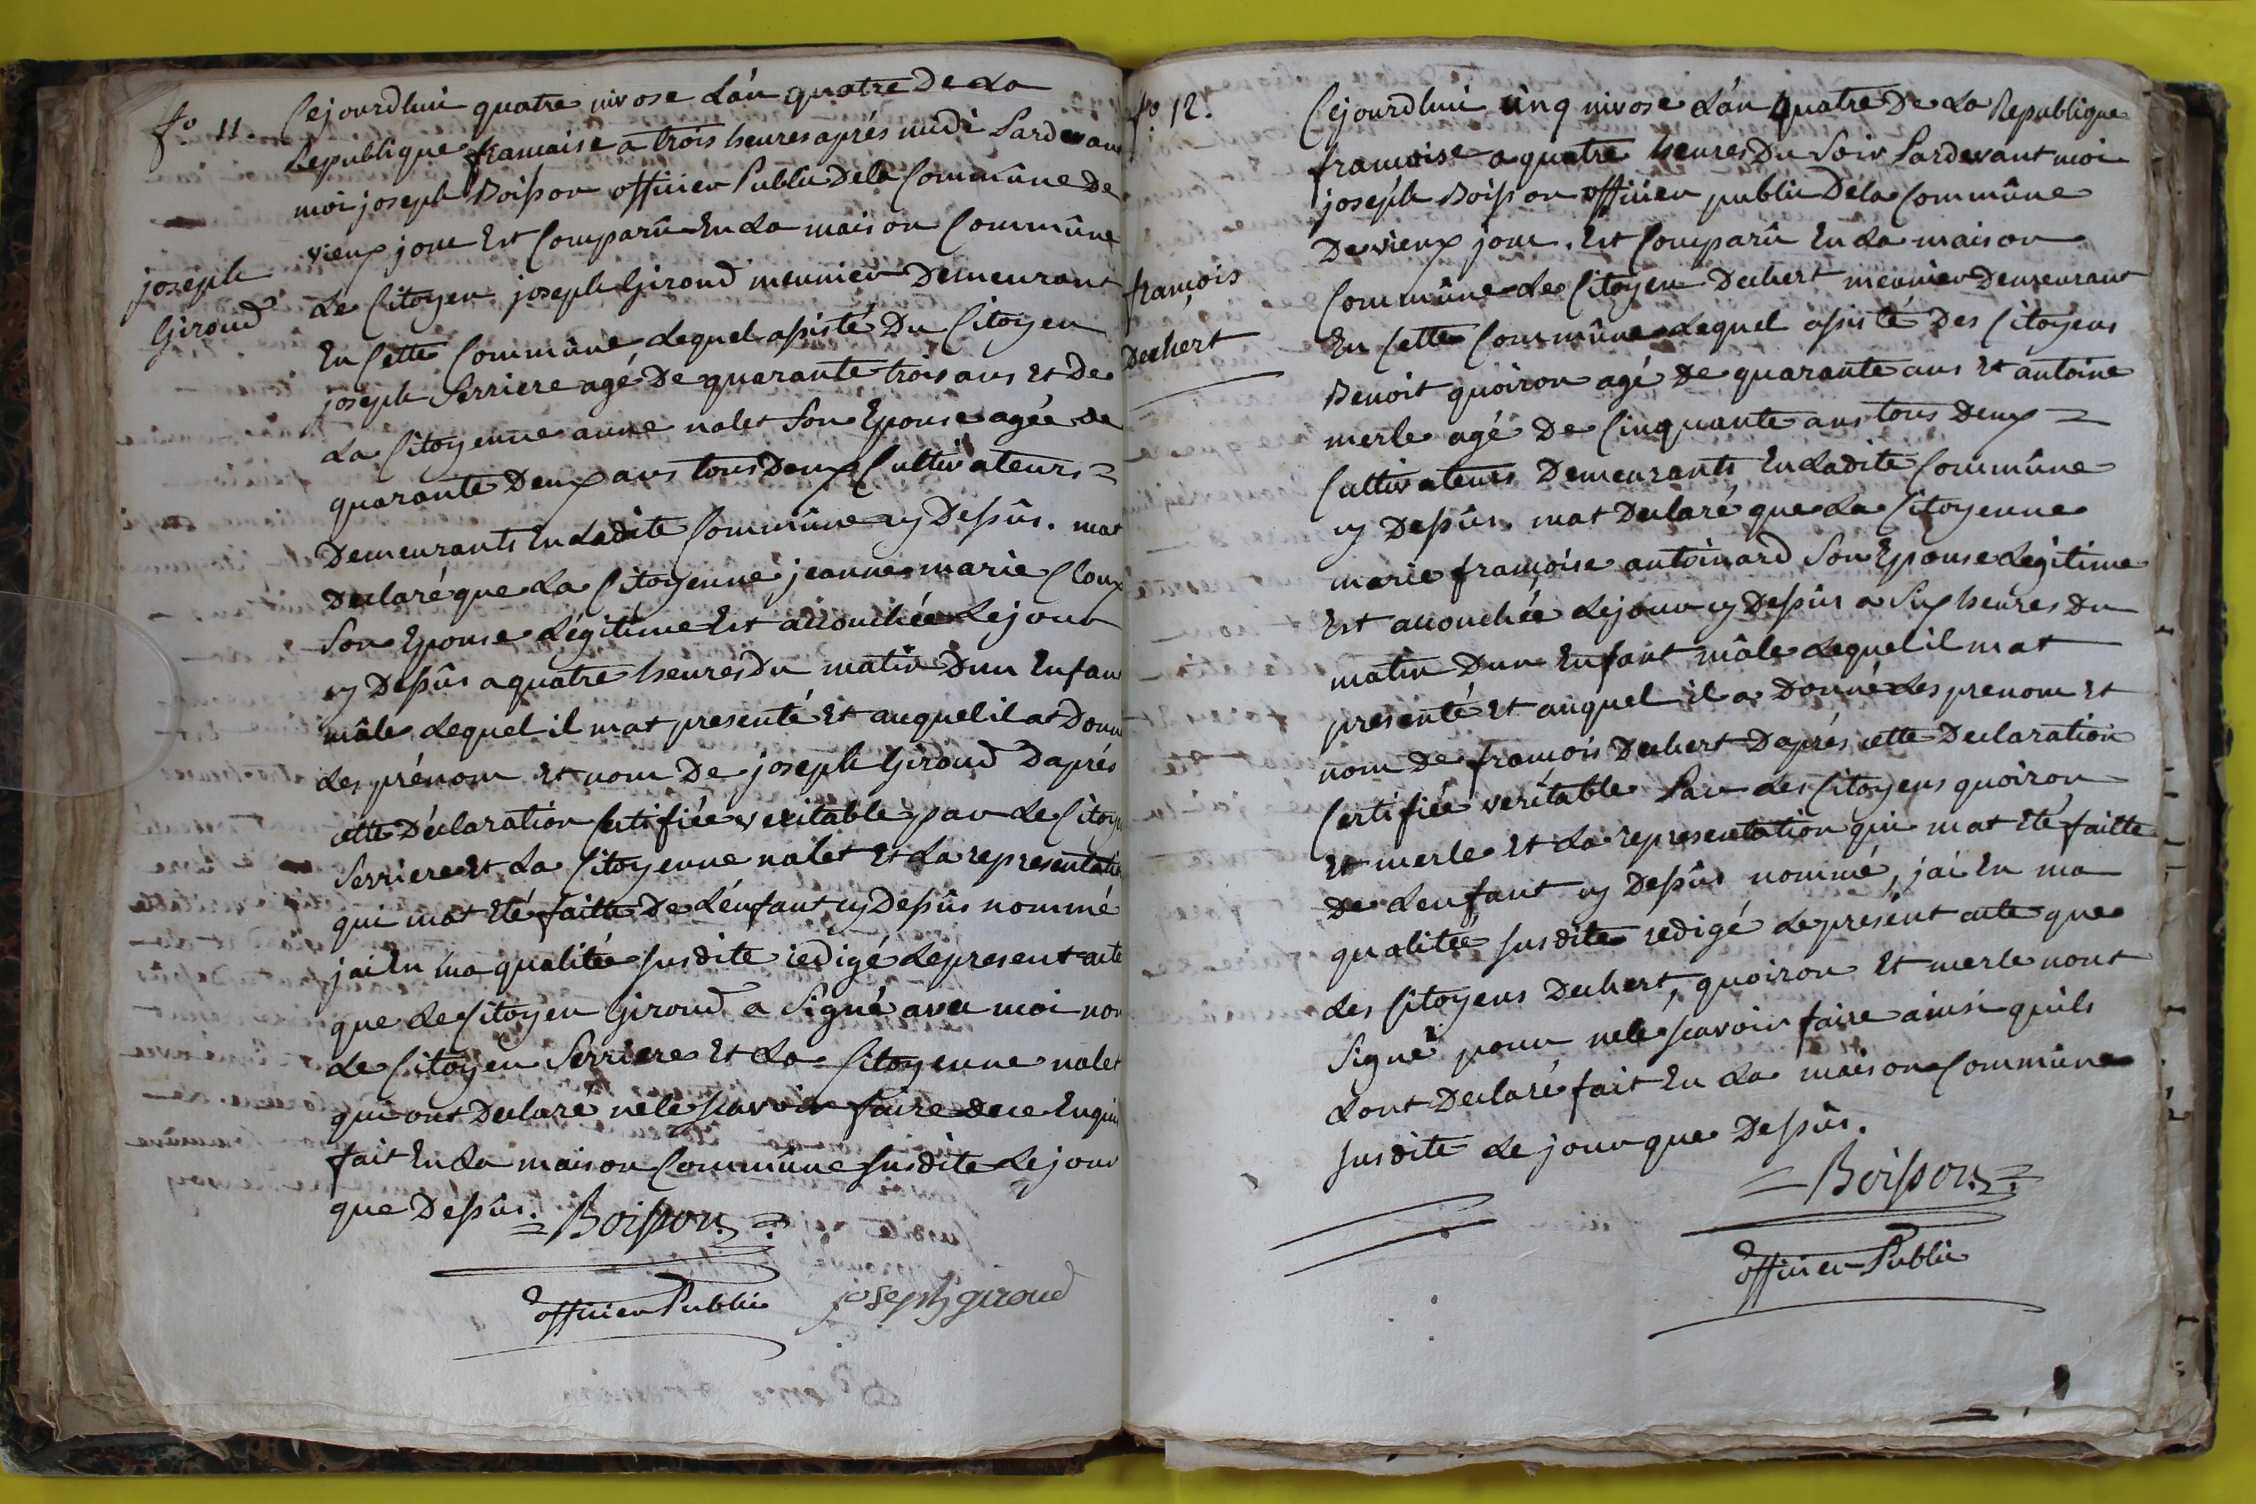 fo 11.
joseph
Giroud
Cejourdhui quatre nivose L'án quatre De La
Republique francaise a trois heures aprés midi Pardevan
moi joseph Boisson officier Public Dela Commûne De
vieux jouc Est Comparû En La maison Commûne
Le Citoyen joseph Giroud meunier Demeurant
En Cette Commûne Lequel assisté Du Citoyen
joseph Serriere agé De quarante trois ans Et De
La Citoyenne anne nalet Son Epouse agée de
quarante Deux ans tous Deux Cultivateurs =
Demeurants En Ladite Commûne cy Dessûs. mat
Declaré que La Citoyenne jeanne marie Cloux
Son Epouse Légitime Est accouchée Le jour
cy Dessûs a quatre heures Du matin Dun Enfan
mâle Lequel il mat presenté Et auquel il at Donn
Les prénom Et nom De joseph Giroud Daprés
cette Déclaration Certifiée veritable par Le Citoy
Serriere Et La Citoyenne nalet Et La representatio
qui mat Eté faitte De L'enfant cy Dessûs nommé
jai En ma qualitée susdite redigé Le present acte
que Le Citoyen Giroud a Signé avec moi non
Le Citoyen Serriere Et La Citoyenne nalet
qui ont Declaré ne le scavoir faire de ce Enqui
fait En La maison Commûne susdite Le jour
que Dessûs. = Boisson =
officier Public joseph giroud
fo 12.
françois
Dechert
Cejourdhui cinq nivose L'án quatre De La Republique
francaise a quatre heures Du Soir Pardevant moi
joséph Boisson officier public Dela Commûne
De vieux jouc. Est Comparû En La maison
Commûne Le Citoyen Dechert meunier Demeurant
En Cette Commûne Lequel assisté Des Citoyens
Benoit quoiron agé De quarante ans Et antoine
merle agé De Cinquante ans tous Deux =
Cultivateurs Demeurants En Ladite Commûne
cy Dessûs. mat Declaré que La Citoyenne
marie françoise antoinard Son Epouse Légitime
Est accouchée Le jour cy Dessûs a Six heures Du
matin Dun Enfant mâle Lequel il mat
presenté Et auquel il a Donné Les prenom Et
nom De françois Dechert Daprés cette Declaration
Certifiée veritable Par Les Citoyens quoiron
Et merle Et La representation qui mat Eté faitte
De Lenfant cy Dessûs nommé, jai En ma
qualitée susdite redigé Le présent acte que
Les Citoyens Dechert, quoiron Et merle nont
Signé pour ne le scavoir faire ainsi quils
Lont Declaré fait En La maison Commûne
susdite Le jour que Dessûs.
= Boisson =
officier Public